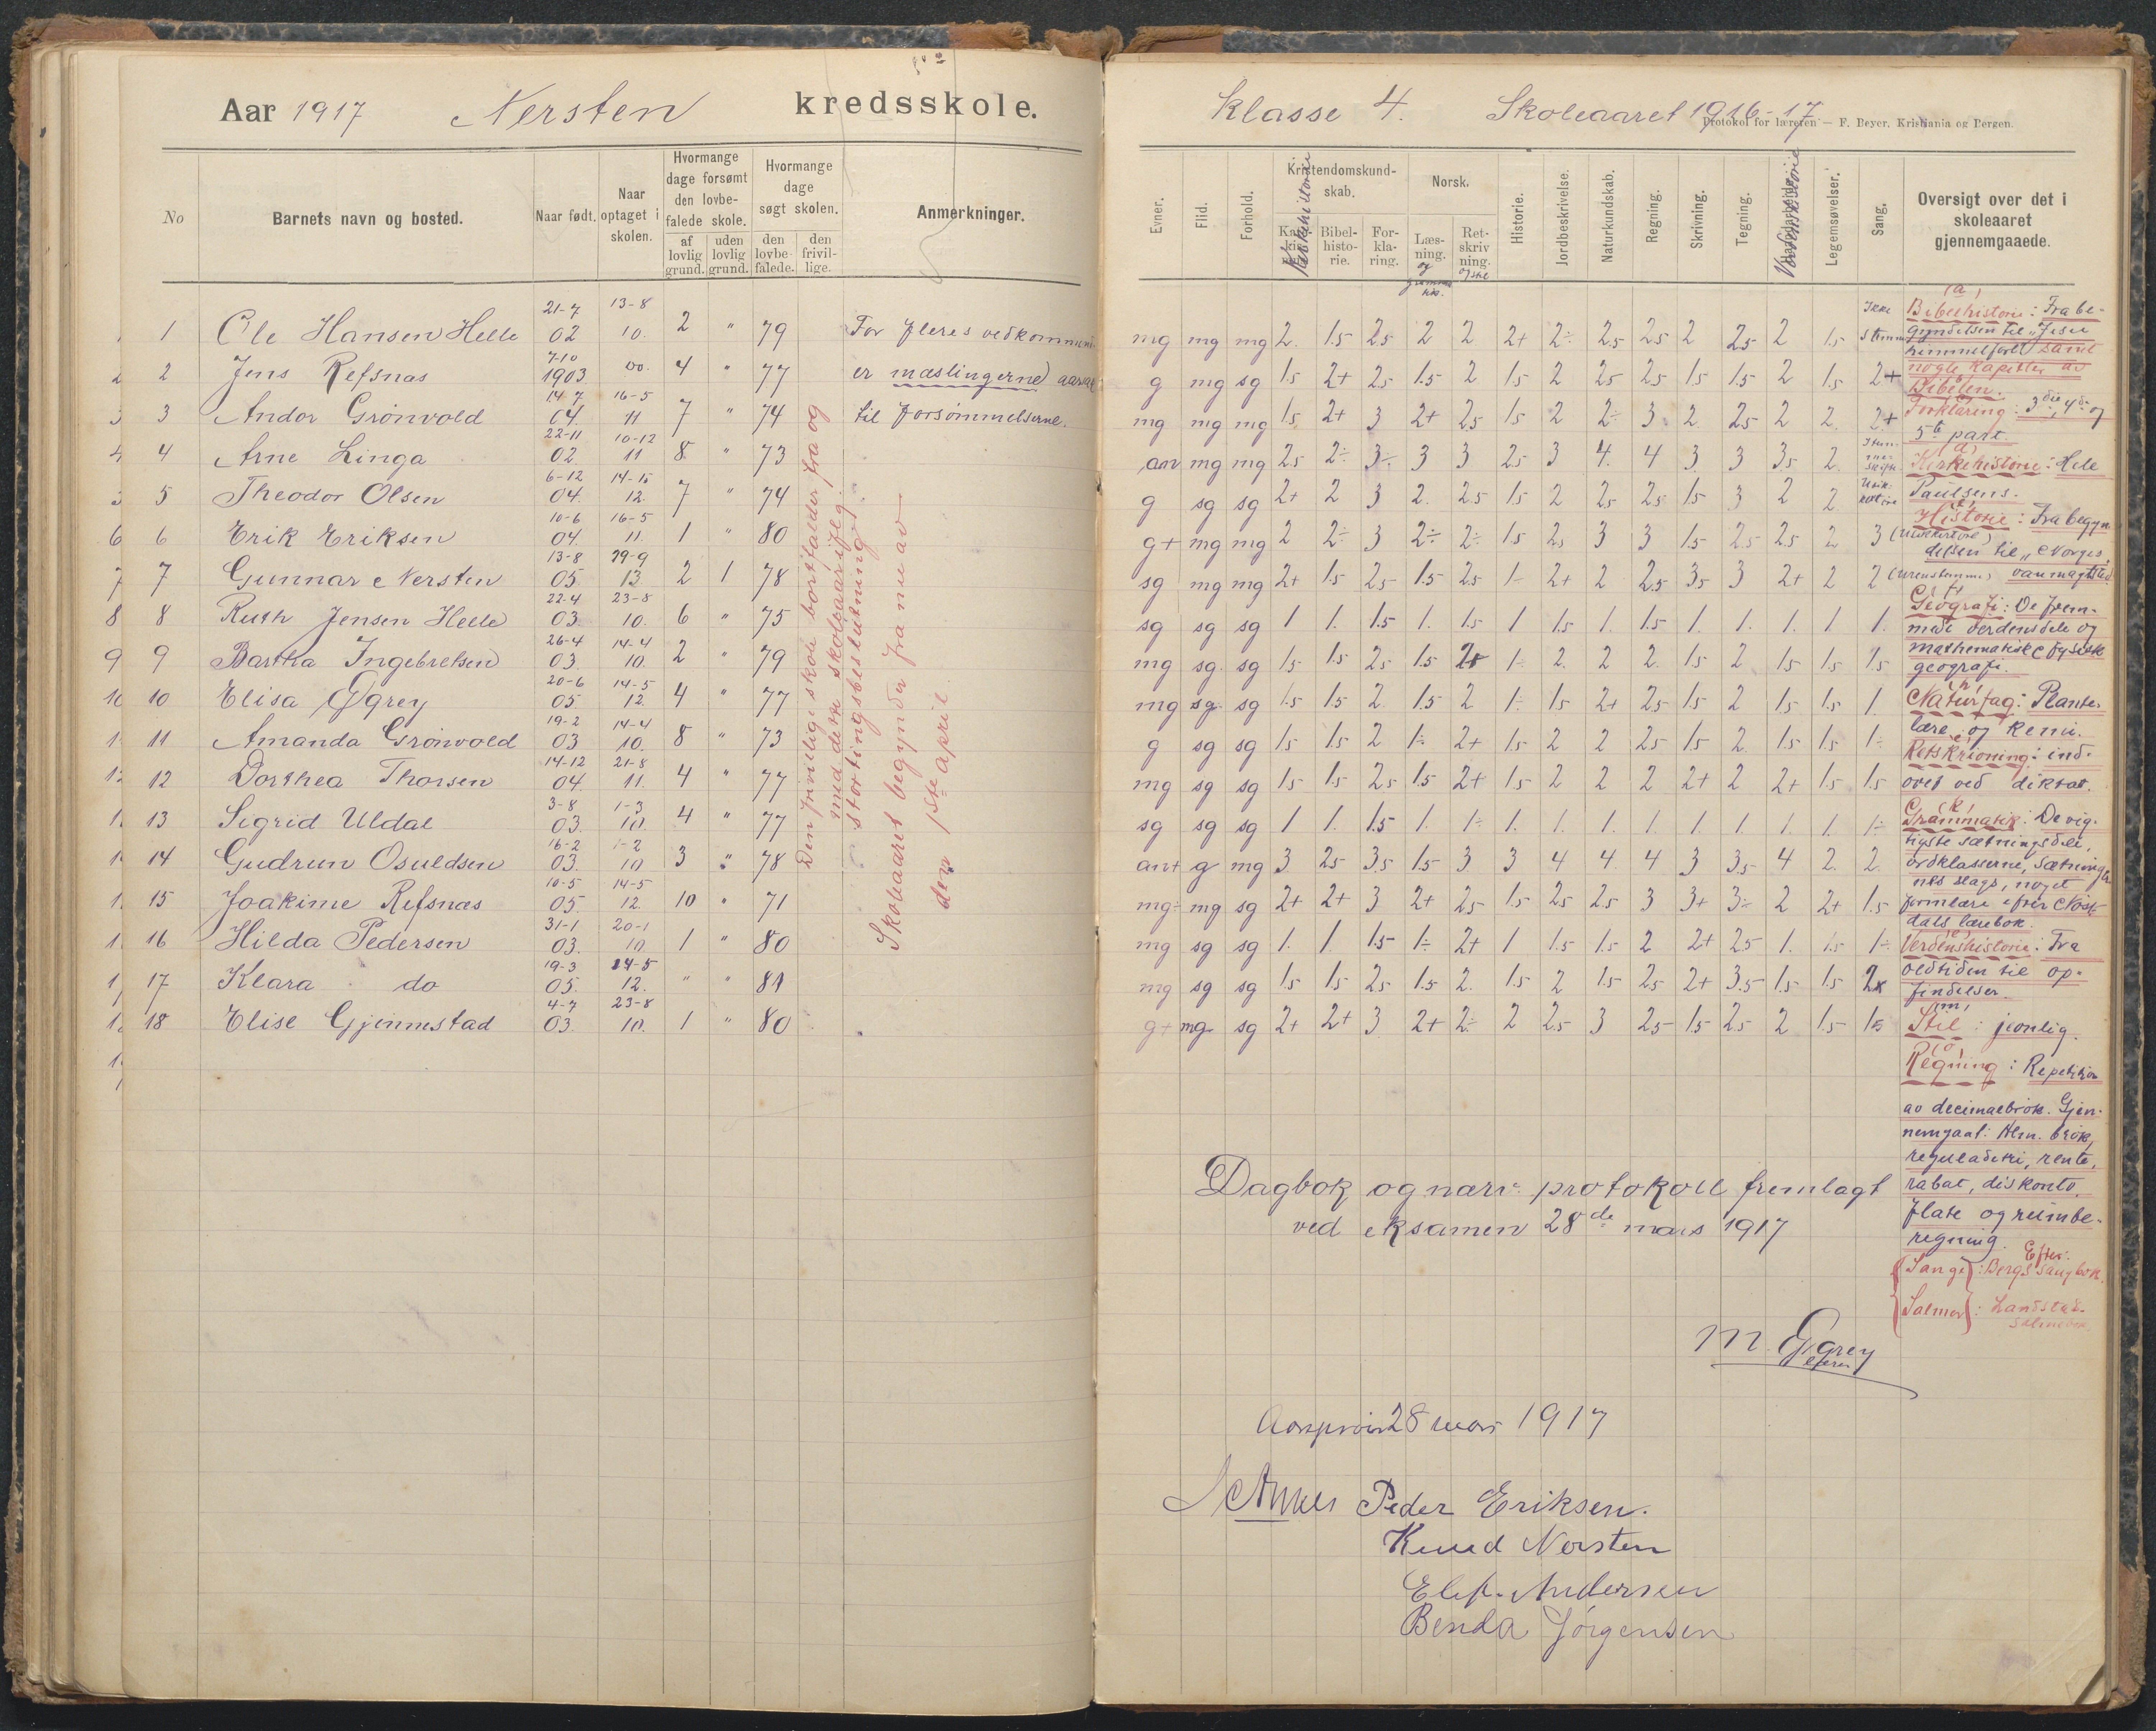 Aar 1917 Nersten kredsskole.
No
Barnets navn og bosted.
Naar født.
Naar optaget i skolen.
Hvormange dage forsømt den lovbefalede skole.
af lovlig grund.
uden lovlig grund.
Hvormange dage søgt skolen.
den lovbefalede.
den frivillige.
Anmerkninger.
1 Ole Hansen Helle 21-7 02 13-8 10. 2 " 79 For fleres vedkommende
2 Jens Refsnæs 7-10 1903 4 " 77 er mæslingerne aarsak
3 Andor Grønvold 14-7 04. 16-5 11 7 " 74 til forsømmelserne.
4 Arne Linga 22-11 02. 10-12 11 8 " 73
5 Theodor Olsen 6-12 04. 14-5 12. 7 " 74
6 Erik Eriksen 10-6 04. 16-5 11. 1 " 80
7 Gunnar Nersten 13-8 05 29-9 13 2 1 78
8 Ruth Jensen Helle 22-4 03 23-8 10. 6 " 75
9 Bartha Ingebretsen 26-4 03. 14-4 10. 2 " 79
10 Elisa Øgrey 20-6 05 14-5 12. 4 " 77
11 Amanda Grønvold 19-2 03 14-4 10. 8 " 73
12 Dorthea Thorsen 14-12 04. 21-8 11. 4 " 77
13 Sigrid Uldal 3-8 03. 1-3 10. 4 " 77
14 Gudrun Osuldsen 16-2 03. 1-2 10 3 " 78
15 Joakime Refsnæs 10-5 05. 14-5 12. 10 " 71
16 Hilda Pedersen 31-1 03. 20-1 10 1 " 80
17 Klara do 19-3 05. 14-5 12. " " 81
18 Elise Gjennestad 4-7 03. 23-8 10. 1 " 80
Den frivilige skole bortfalder fra og
med dette skoleaar ifølg.
stortingsbeslutning.
Skoleaaret begynder fra nu av
den 1ste april.
Klasse 4. Skoleaaret 1916-17
Protokol for læreren. — F. Beyer, Kristiania og Bergen.
Evner.
Flid.
Forhold.
Kristendomskundskab.
Kirkehistorie
Bibelhistorie.
Forklaring.
Norsk.
Læsning. og grammatik.
Retskrivning. og stil
Historie.
Jordbeskrivelse.
Naturkundskab.
Regning.
Skrivning.
Tegning.
Verdenshistorie
Legemsøvelser.
Sang.
Oversigt over det i skoleaaret gjennemgaaede.
mg mg mg 2. 1.5 2.5 2 2 2+ 2÷ 2.5 2.5 2 2.5 2 1.5 Ikke stemme
g mg sg 1.5 2+ 2.5 1.5 2 1.5 2 2.5 2.5 1.5 1.5 2 1.5 2+
mg mg mg 1.5 2+ 3 2+ 2.5 1.5 2 2÷ 3 2 2.5 2 2. 2+
an mg mg 2.5 2÷ 3÷ 3 3 2.5 3 4. 4 3 3 3.5 2.
g sg sg 2+ 2 3 2. 2.5 1.5 2 2.5 2.5 1.5 3 2 2
g+ mg mg 2 2÷ 3 2÷ 2÷ 1.5 2.5 3 3 1.5 2.5 2.5 2 3
sg mg mg 2+ 1.5 2.5 1.5 2.5 1÷ 2+ 2 2.5 3.5 3 2+ 2 2
sg sg sg 1 1. 1.5 1. 1.5 1 1.5 1. 1.5 1. 1. 1. 1 1.
mg sg sg 1.5 1.5 2.5 1.5 2.5 1÷ 2. 2 2. 1.5 2 1.5 1.5 1.5
mg sg sg 1.5 1.5 2. 1.5 2 1÷ 1.5 2+ 2.5 1.5 2 1.5 1.5 1.
g sg sg 1.5 1.5 2 1÷ 2+ 1.5 2 2 2.5 1.5 2. 1.5 1.5 1÷
mg sg sg 1.5 1.5 2.5 1.5 2+ 1.5 2 2 2 2+ 2 2+ 1.5 1.5
sg sg sg 1 1. 1.5 1. 1÷ 1. 1. 1. 1. 1. 1. 1. 1. 1÷
an+ g mg 3 2.5 3.5 1.5 3 3 4 4. 4 3 3.5 4 2. 2.
mg÷ mg sg 2+ 2+ 3 2+ 2.5 1.5 2.5 2.5 3 3+ 3÷ 2 2+ 1.5
mg sg sg 1. 1. 1.5 1÷ 2+ 1 1.5 1.5 2 2+ 2.5 1. 1.5 1÷
mg sg sg 1.5 1.5 2.5 1.5 2. 1.5 2 1.5 2.5 2+ 3.5 1.5 1.5 2
g+ mg sg 2+ 2+ 3 2+ 2÷ 2 2.5 3 2.5 1.5 2.5 2 1.5 1.5
(a)
Bibelhistorie: Fra be-
gyndelsen til "Jesu
himmelfart" samt
nogle kapitler av
Bibelen.
Forklaring: 3die, 4de og
5te part
(d)
Kirkehistorie: Hele
Paulsens.
Historie: Fra begyn
delsen til "Norges
vanmagtstid
Geografi: De frem-
mede verdensdele og
mathematisk fysisk
geografi.
(h)
Naturfag: Plante-
lære og kemi.
Retskrivning: ind-
øvet ved diktat.
(k)
Grammatik: De vig-
tigste sætningsdele,
ordklasserne, sætninger-
nes slags, noget
formlære efter Nord-
dals lærebok.
Verdenshistorie: Fra
oldtiden til op-
findelser.
(m)
Stil: jevnlig.
(o)
Regning: Repetition
av decimalbrøk. Gjen-
nemgaat: Alm. brøk,
reguladetri, rente,
rabat, diskonto,
flate og rumbe-
regning.
{Sange}: Efter Bergs sangbok.
{Salmer}: Landstad. salmebok.
Dagbok og nærv. protokoll fremlagt
ved eksamen 28de mars 1917
M. Øgrey
lærer
Aarsprøve 28 mars 1917
Peder Eriksen.
Knud Nersten
Andersen
Benda Jørgensen